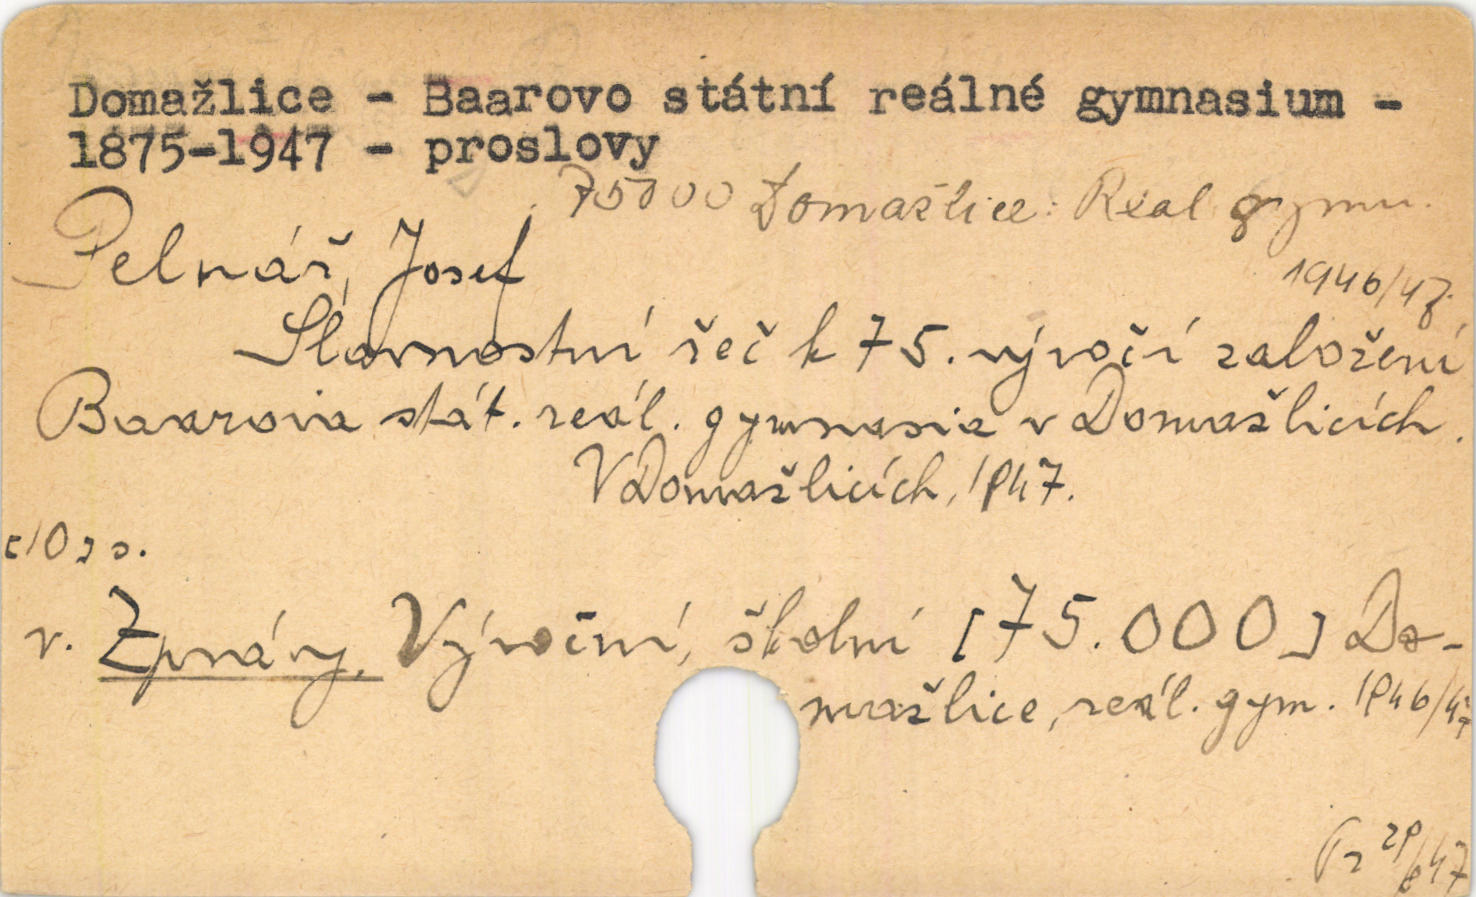 Domažlice - Baarovo státní reálné gymnasium -
1875-1947 - proslovy
75000 Domažlice: Reál gymn.
1946/47.
Pelnář, Josef
Slavnostní řeč k 75. výročí založení
Baarova stát. reál. gymnasia v Domažlicích.
V Domažlicích, 1947.
v. Zprávy, Výroční, školní [75.000] Do-
mažlice, reál. gym. 1946/47